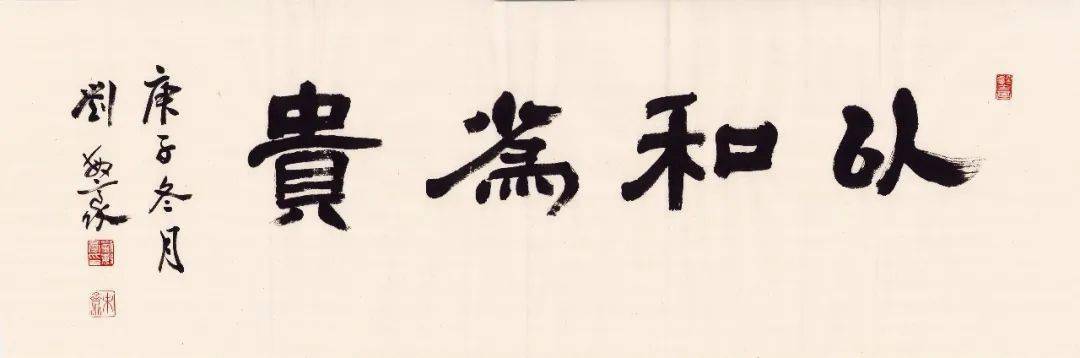 以和為貴
庚子冬月
劉